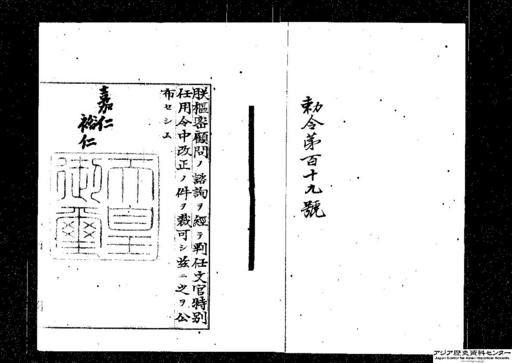 勅令第百十九號
朕樞密顧問ノ諮詢ヲ經テ判任文官特別
任用令中改正ノ件ヲ裁可シ茲ニ之ヲ公
布セシム
嘉仁
裕仁
天皇
御璽
アジア歴史資料センター
Japan Center for Asian Historical Records